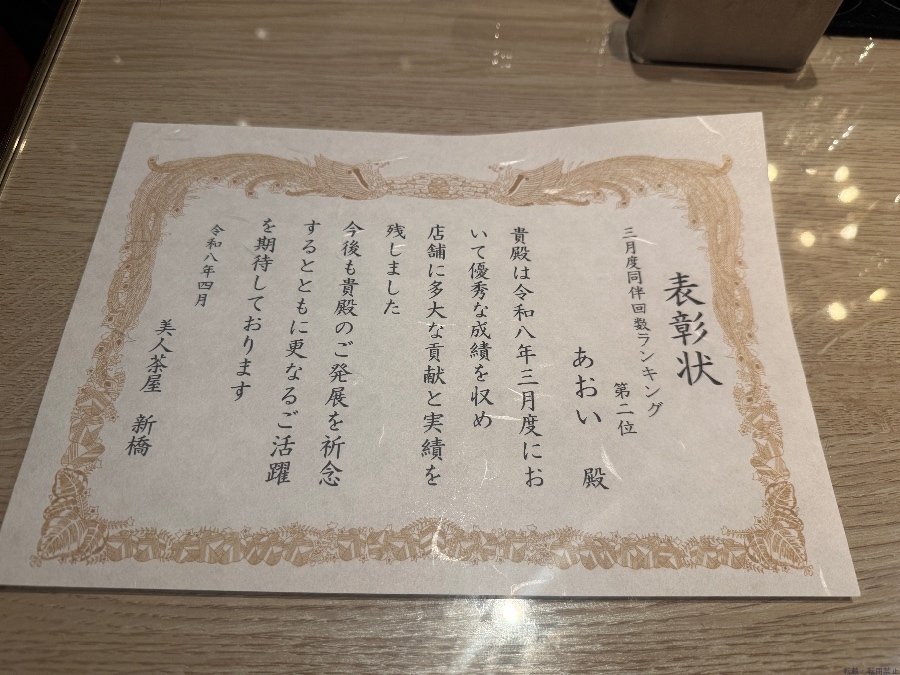 表彰状
三月度同伴回数ランキング
第二位
あおい 殿
貴殿は令和八年三月度にお
いて優秀な成績を収め
店舗に多大な貢献と実績を
残しました
今後も貴殿のご発展を祈念
するとともに更なるご活躍
を期待しております
令和八年四月
美人茶屋 新橋